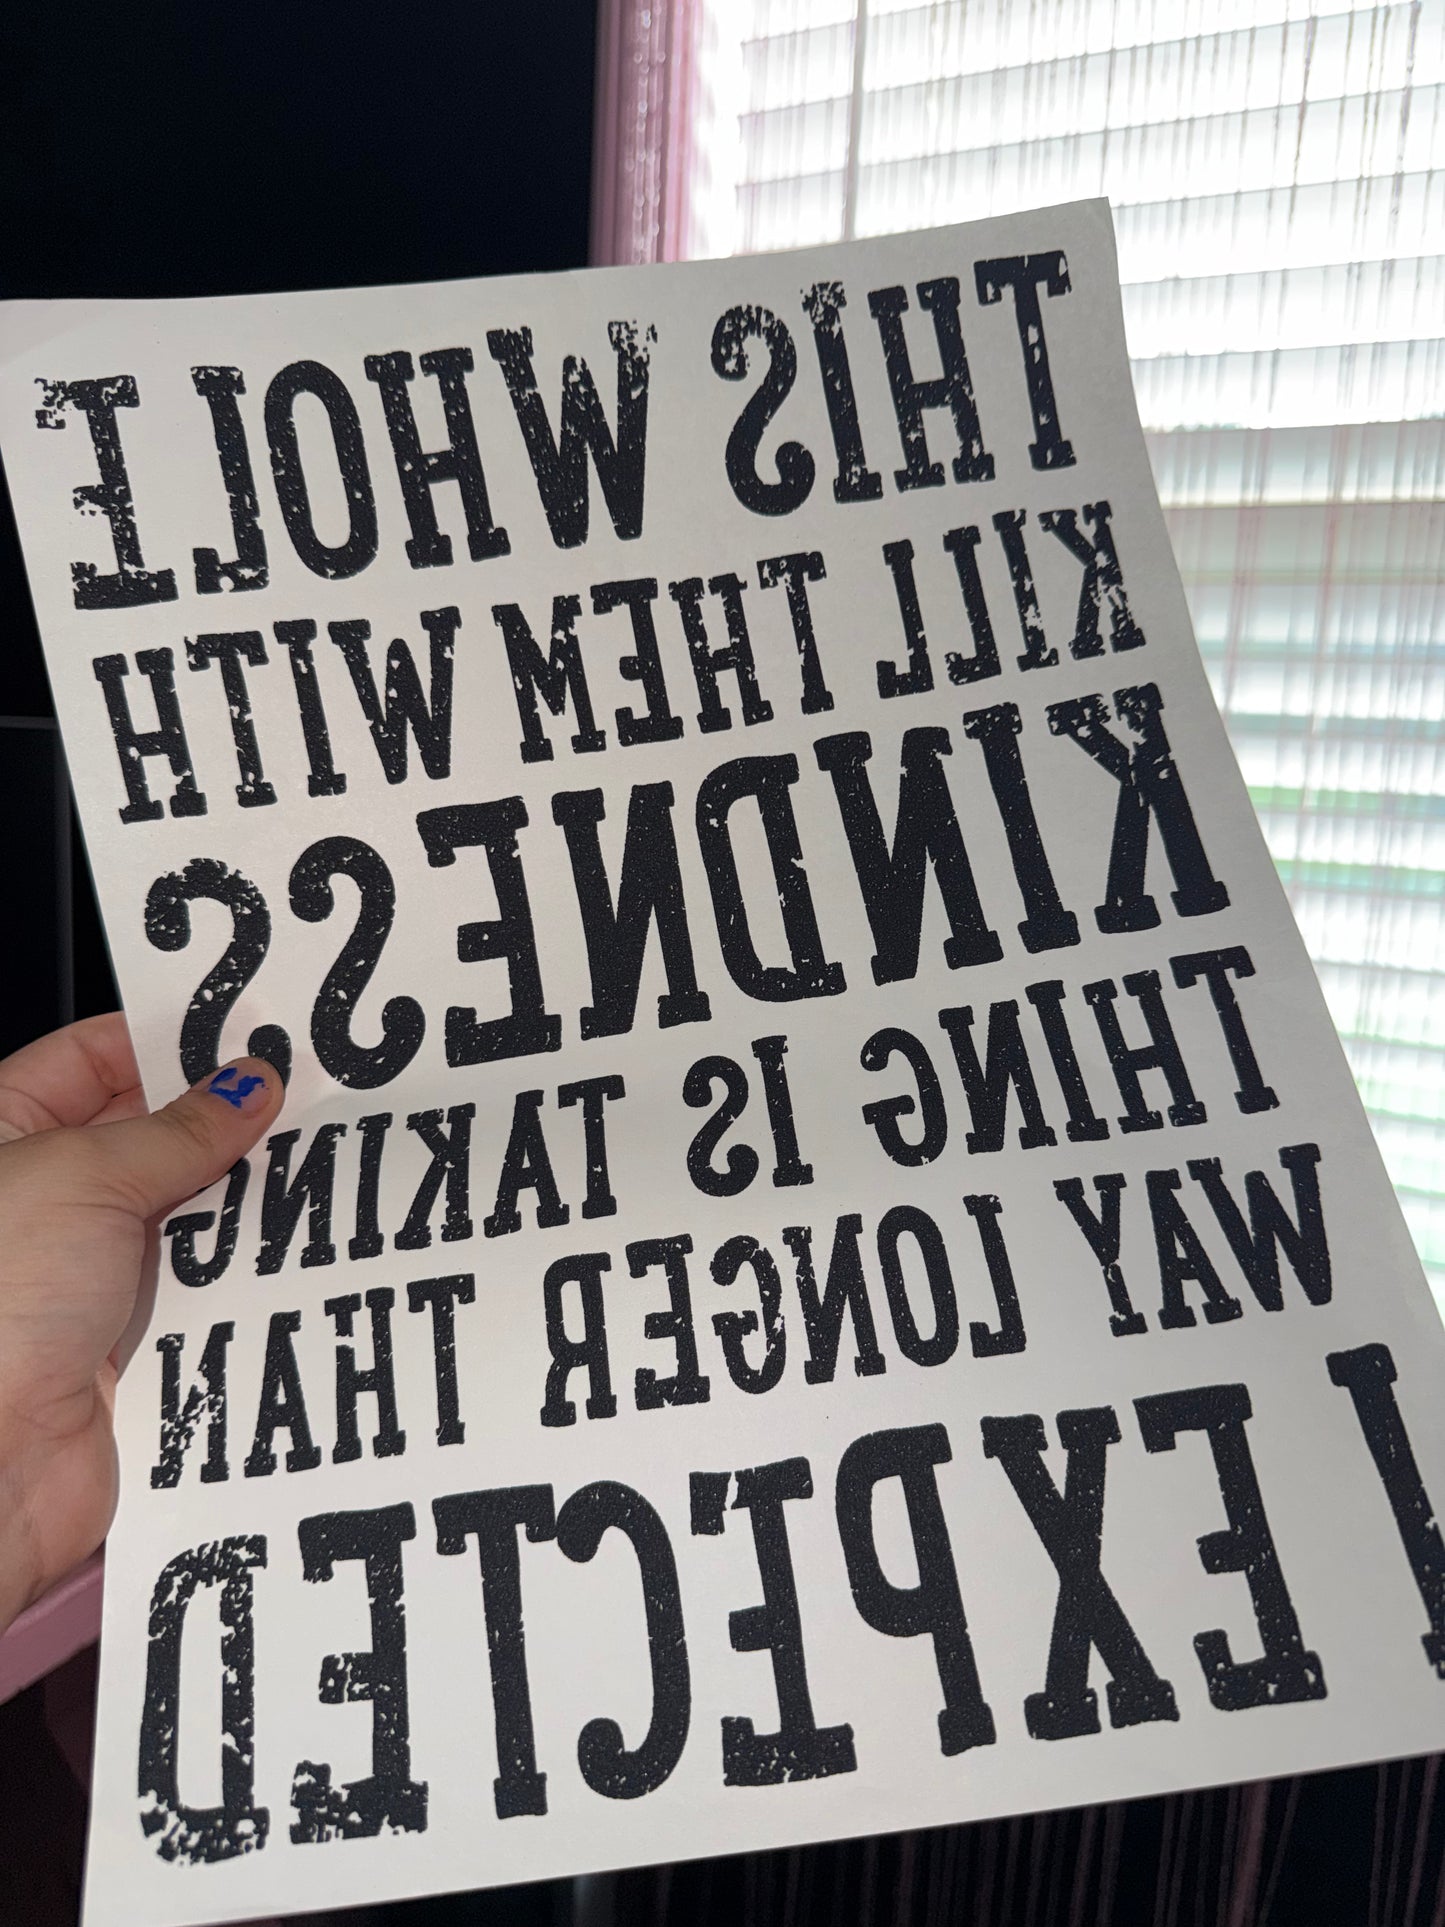 THIS WHOLE
KILL THEM WITH
KINDNESS
THING IS TAKING
WAY LONGER THAN
I EXPECTED